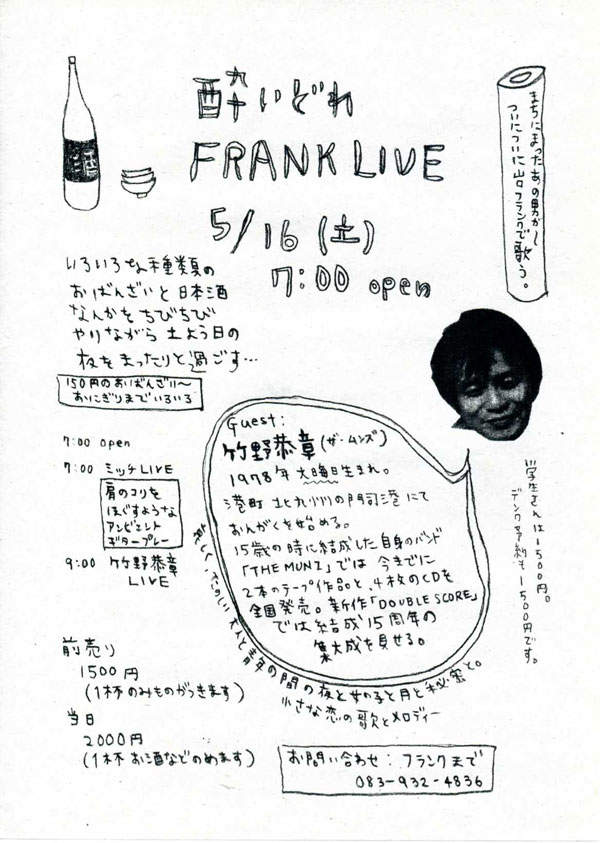 酔いどれ
FRANK LIVE
5/16(土)
7:00 open
まちにまったあの男が〜
ついについに山口フランクで歌う。
酒
いろいろな種類の
おばんざいと日本酒
なんかをちびちび
やりながら土よう日の
夜をまったりと過ごす…
150円のおばんざい〜
おにぎりまでいろいろ
7:00 open
7:00 ミッチLIVE
肩のコリを
ほぐすような
アンビエント
ギタープレー
9:00 竹野恭章
LIVE
Guest:
竹野恭章(ザ・ムンズ)
1978年大晦日生まれ。
港町北九州の門司港にて
おんがくを始める。
15歳の時に結成した自身のバンド
「THE MUNZ」では今までに
2本のテープ作品と、4枚のCDを
全国発売。新作「DOUBLE SCORE」
では結成15周年の
集大成を見せる。
たのしい大人と青年の間の夜と女の子と月と秘密と。
小さな恋の歌とメロディー
学生さんは1500円。
デンワ予約も1500円です。
前売り
1500円
(1杯のみものがつきます)
当日
2000円
(1杯お酒などのめます)
お問い合わせ:フランクまで
083-932-4836